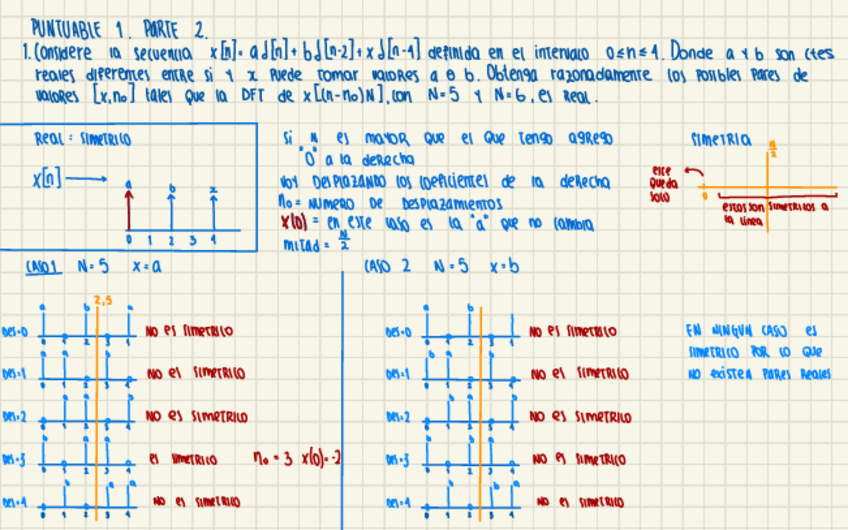 PUNTUABLE 1. PARTE 2.
1. Considere la secuencia x[n]= aδ[n]+ bδ[n-2]+ xδ[n-4] definida en el intervalo 0≤n≤4. Donde a y b son ctes
reales diferentes entre si y x puede tomar valores a o b. Obtenga razonadamente los posibles pares de
valores [x,n₀] tales que la DFT de x[(n-n₀)N], con N=5 y N=6, es Real.
Real = simetrico
x[n]
a
b
x
0 1 2 3 4
Si N es mayor que el que tengo agrego
"0" a la derecha
voy desplazando los coeficientes de la derecha
n₀ = numero de desplazamientos
x(0) = en este caso es la "a" que no cambia
mitad = N/2
simetria
N/2
este
queda
solo
0
estos son simetricos a
la linea
CASO 1 N=5 x=a
2,5
Des=0 NO es simetrico
Des=1 NO es simetrico
Des=2 NO es simetrico
Des=3 es simetrico n₀ = 3 x(0)=-2
Des=4 NO es simetrico
CASO 2 N=5 x=b
Des=0 NO es simetrico
Des=1 NO es simetrico
Des=2 NO es simetrico
Des=3 NO es simetrico
Des=4 NO es simetrico
EN NINGUN CASO es
simetrico por lo que
NO existen pares reales